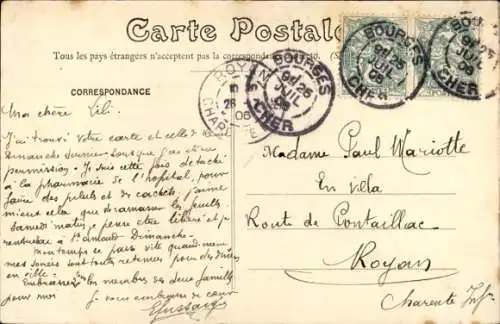 Carte Postale
Tous les pays étrangers n'acceptent pas la correspondance
CORRESPONDANCE
BOURGES
9d 25
JUIL
06
CHER
BOURGES
9d 25
JUIL
06
CHER
BOURGES
9d 25
JUIL
06
CHER
ROYAN
26
06
Ma chère Lili.
J'ai trouvé votre carte et celle de
Dimanche dernier lorsque
permission. Je suis cette fois détaché
à la pharmacie de l'hôpital, pour
faire des pilules et des cachets, j'aime
mieux cela que de ramasser les
Samedi matin je pense être libéré et je
rentrerai à St Amand Dimanche.
mon temps se passe vite quand même
mes soeurs sont toutes retenues pour des
en ville.
Embrassez les membres des deux familles
pour moi
je vous embrasse de coeur
Madame Paul Mariotte
En villa
Route de Pontaillac
Royan
Charente Infre